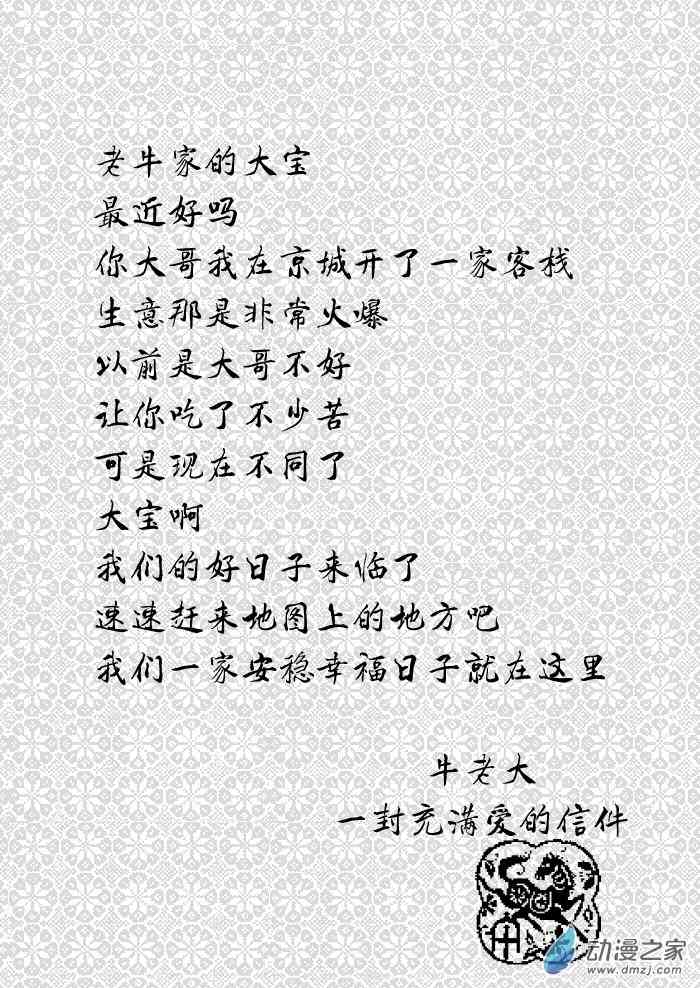 老牛家的大宝
最近好吗
你大哥我在京城开了一家客栈
生意那是非常火爆
以前是大哥不好
让你吃了不少苦
可是现在不同了
大宝啊
我们的好日子来临了
速速赶来地图上的地方吧
我们一家安稳幸福日子就在这里
牛老大
一封充满爱的信件
动漫之家
www.dmzj.com